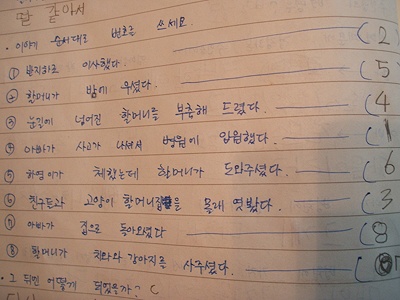 말 같아서
· 이야기 순서대로 번호를 쓰세요.
① 반지하로 이사했다. (2)
② 할머니가 밤에 우셨다. (5)
③ 눈길에 넘어진 할머니를 부축해 드렸다. (4)
④ 아빠가 사고가 나셔서 병원에 입원했다. (1
⑤ 하영이가 체했는데 할머니가 도와주셨다. (6
⑥ 친구들과 고양이 할머니집을 몰래 엿봤다. (3
⑦ 아빠가 집으로 돌아오셨다 (8
⑧ 할머니가 치와와 강아지를 사주셨다. (7
· 그 뒤엔 어떻게 되었을까? (